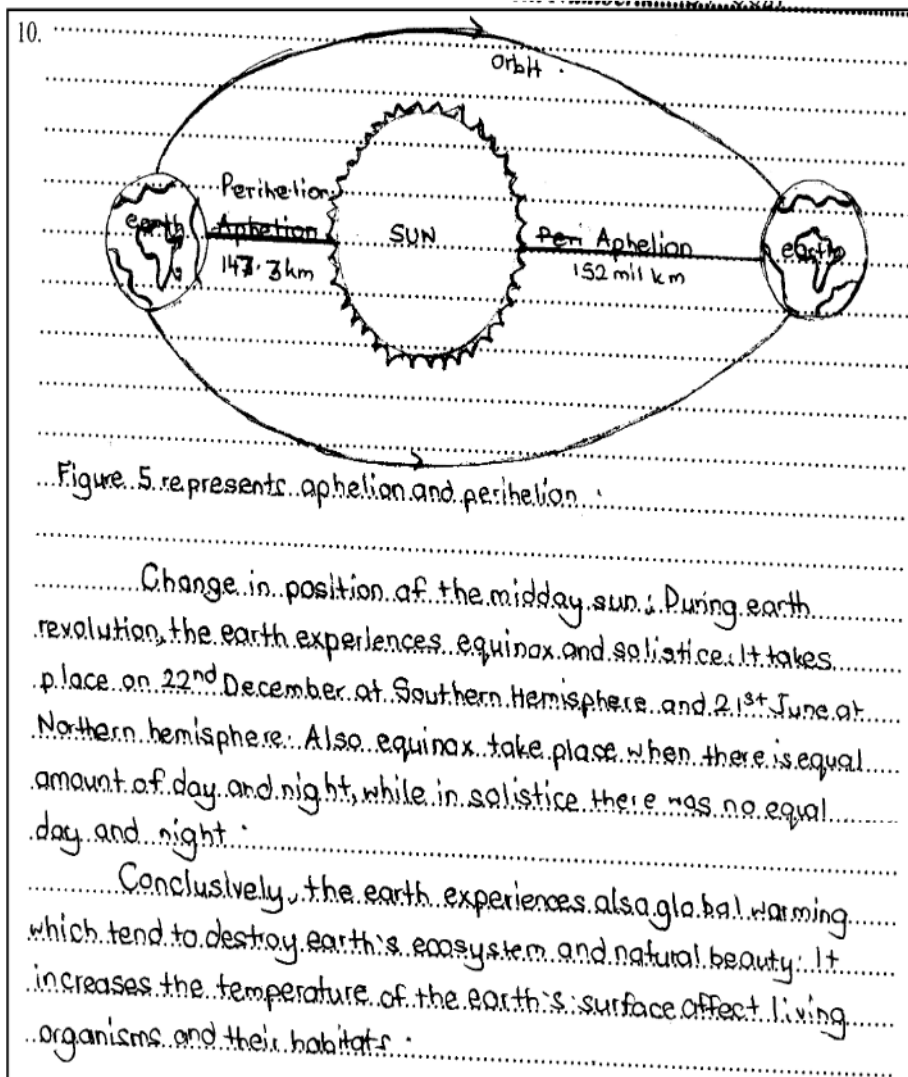 10.
orbit.
Perihelion
Aphelion
earth
SUN
Peri Aphelion
earth
147.3 km
152 mil km
Figure 5 represents aphelion and perihelion.
Change in position of the midday sun; During earth
revolution, the earth experiences equinox and solistice. It takes
place on 22nd December at Southern Hemisphere and 21st June at
Northern hemisphere. Also equinox take place when there is equal
amount of day and night, while in solistice there was no equal
day and night.
Conclusively, the earth experiences also global warming
which tend to destroy earth's ecosystem and natural beauty. It
increases the temperature of the earth's surface affect living
organisms and their habitats.